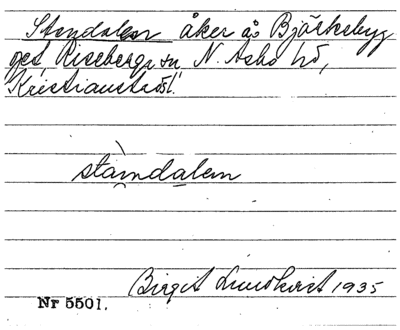 Stondalen åker å Björkebyg
get, Riseberga sn, N. Asbo hd,
Kristianstads l.
ståndalen
Birgit Lundkvist 1935
Nr 5501.